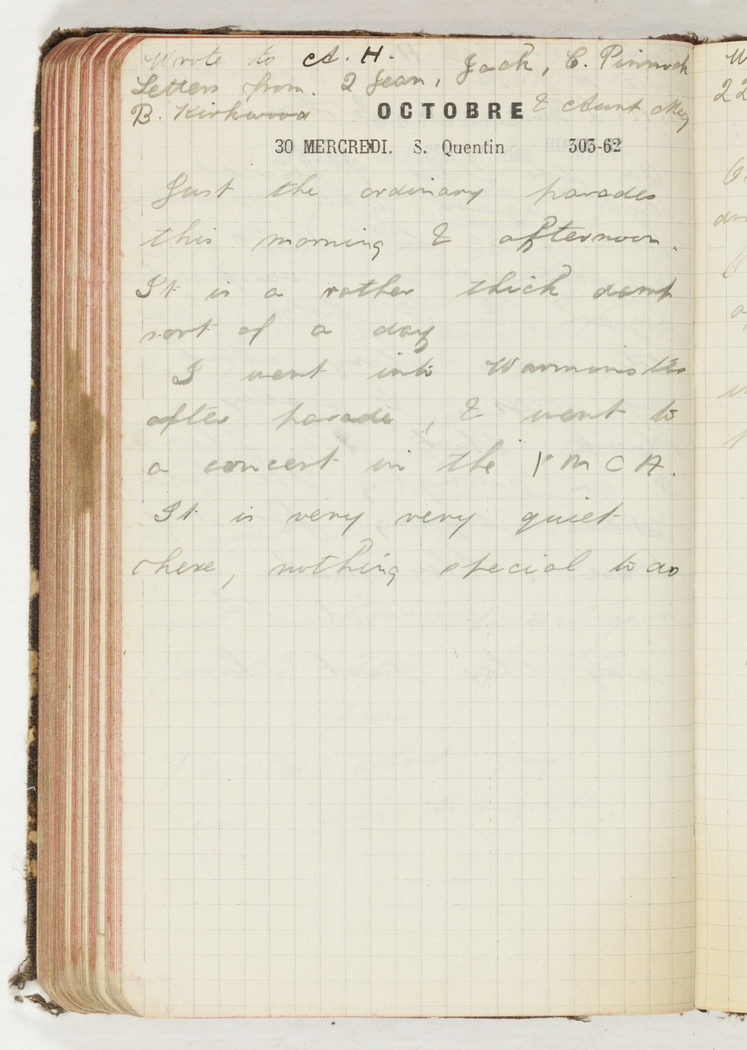 Wrote to A. H.
Letters from. 2 Jean, Jack, C. Pinnock
B. Kirkwood & Aunt Meg
OCTOBRE
30 MERCREDI. S. Quentin 303-62
Just the ordinary parades
this morning & afternoon.
It is a rather thick damp
sort of a day
I went into Warminster
after parade, & went to
a concert in the Y M C A.
It is very very quiet
here, nothing special to do
W
22